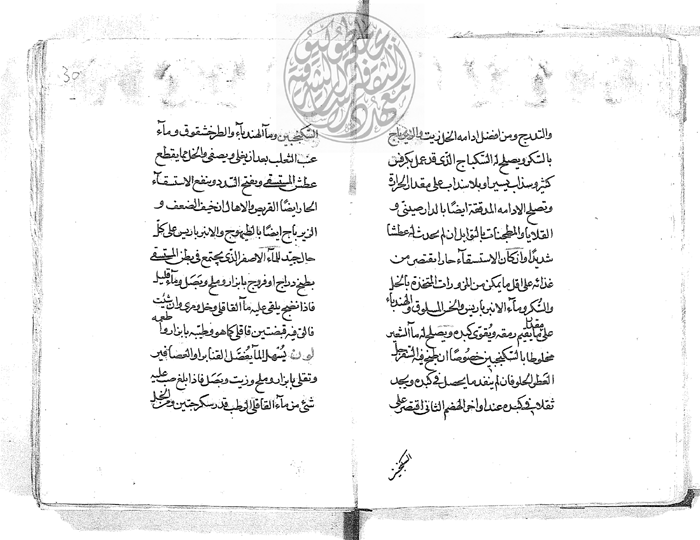 والتدرج ومن افضل ادامه الخل زيت والزيرباج
بالسكر ويصلح له السكباج الذى قد عمل بكرفس
كثير وسذاب يسير او بلا سذاب على مقدار الحرارة
وتصلح الادامه المدققة ايضا بالدارصينى و
القلايا والمطجنات بالتوابل ان لم يحدث له عطشا
شديدا وان كان الاستسقاء حارا يقتصر من
غذائه على اقل ما يمكن من المزورات المتخذة بالخل
والسكر وماء الانبرباريس والخس المسلوق والهندباء
على مقدار ما يقيم رمقه ويقوى كبده ويصلح له ماء الشعير
مخلوطا بالسكنجبين خصوصا ان طبخ فيه السفرجل
العطر الحلو فان لم ينفد ما يحصل فى كبده ويجد
ثقلا فى كبده عند اواخر الهضم الثانى اقتصر على
السكنجبين
30
السكنجبين وماء الهندباء والطرخشقوق وماء
عنب الثعلب بعد ان يغلى ويصفى والخل مما يقطع
عطش المستسقى ويفتح السدد وينفع الاستسقاء
الحار ايضا القريص والاهال ان خيف الضعف و
الزيرباج ايضا بالطيهوج والانبرباريس على كل
حال جيد للماء الاصفر الذى يجتمع فى بطن المستسقى
يطبخ دراج او فروج بابزار وملح وبصل وماء قليل
فاذا نضج يلقى عليه ماء القاقلى وخل ومرى وان شئت
فالق فيه قبضتين قاقلى كما هو وطيبه بابزار واطعمه
لون يسهل الماء يفصل القنابر او العصافير
وتقلى بابزار وملح وزيت وبصل فاذا بلغ صب عليه
شئ من ماء القاقلى الرطب قدر سكرجتين ومن الخل